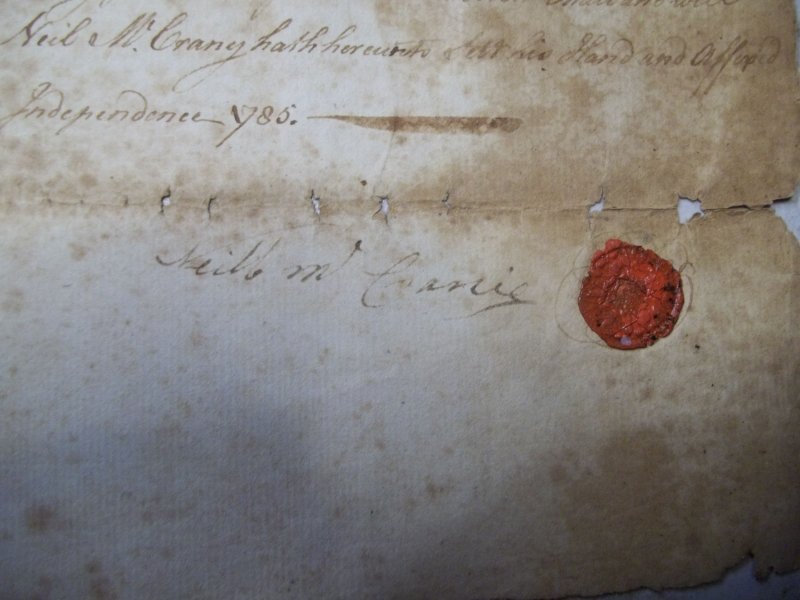 and will
Neil Mc. Crany hath hereunto Sett his Hand and Affixed
Independence 1785.
Neill Mc Cranie